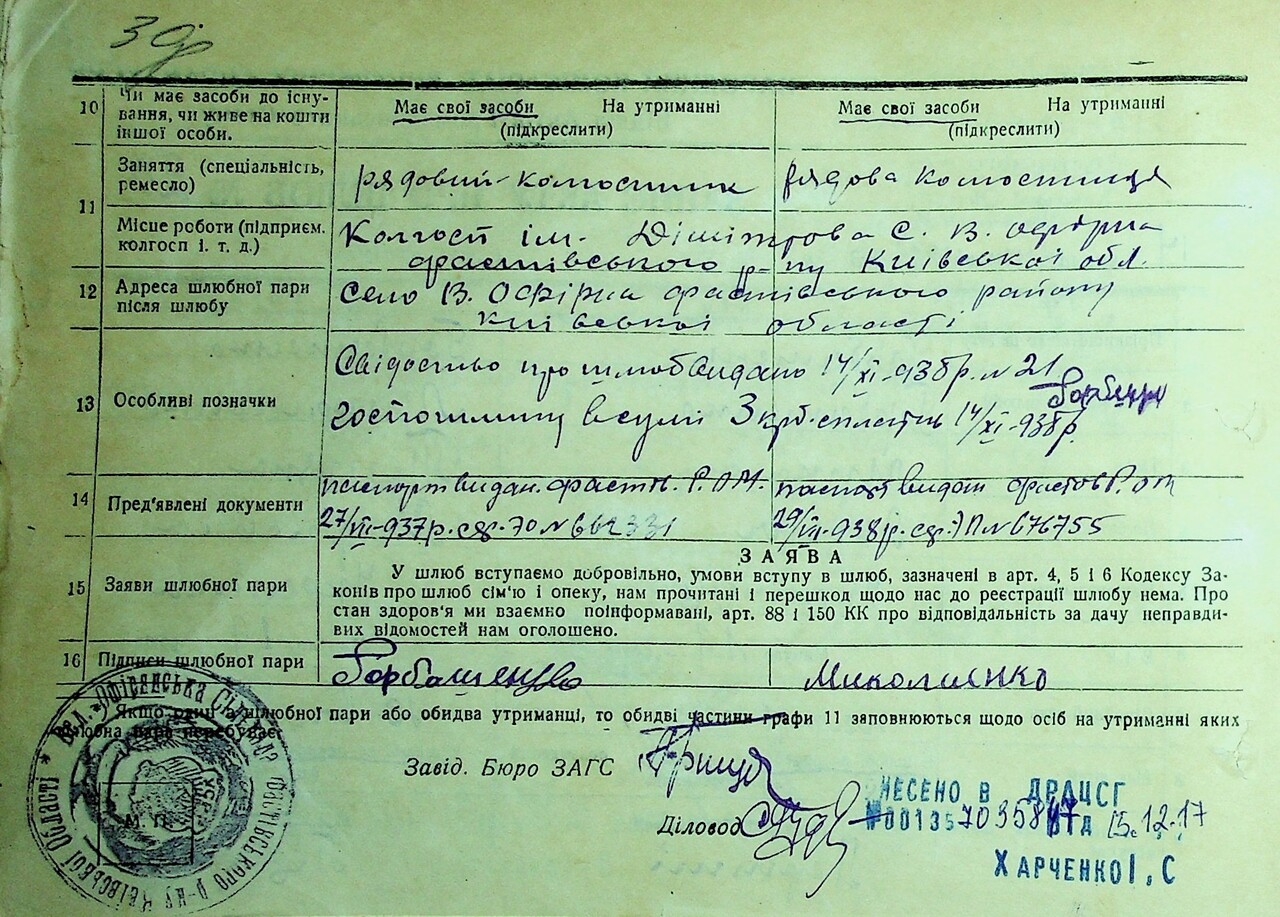 10 Чи має засоби до існу-
вання, чи живе на кошти
іншої особи.
Має свої засоби На утриманні
(підкреслити)
Має свої засоби На утриманні
(підкреслити)
11 Заняття (спеціальність,
ремесло)
рядовий-колгоспник
рядова колгоспниця
Місце роботи (підприєм.
колгосп і. т. д.)
Колгосп ім. Дімітрова С. В. Офірна
Фастівського р-ну Київської обл.
12 Адреса шлюбної пари
після шлюбу
Село В. Офірна Фастівського району
Київської області
13 Особливі позначки
Свідоцтво про шлюб видано 14/XI-938р. № 21
Госпошлину в сумі 3 крб. сплатив 14/XI-938р.
14 Пред'явлені документи
паспорт видан. Фастів. Р.О М.
27/VII-937р. сер. ЭО № 662331
паспорт видан Фастов Р.О М
29/VII-938р. сер. ЭП № 676755
ЗАЯВА
15 Заяви шлюбної пари
У шлюб вступаємо добровільно, умови вступу в шлюб, зазначені в арт. 4, 5 і 6 Кодексу За-
конів про шлюб сім'ю і опеку, нам прочитані і перешкод щодо нас до реєстрації шлюбу нема. Про
стан здоров'я ми взаємно поінформавані, арт. 88 і 150 КК про відповідальність за дачу неправди-
вих відомостей нам оголошено.
16 Підписи шлюбної пари
Миколаенко
Якщо один з шлюбної пари або обидва утриманці, то обидві частини графи 11 заповнюються щодо осіб на утриманні яких
шлюбна пара перебуває
Завід. Бюро ЗАГС
Діловод
М. П.
Вел.-Офірнянська Сільрада Фастівського р-ну Київської Області
УСРР
ВНЕСЕНО В ДРАЦСГ
№00135703584 ВІД 15.12.17
ХАРЧЕНКО І, С